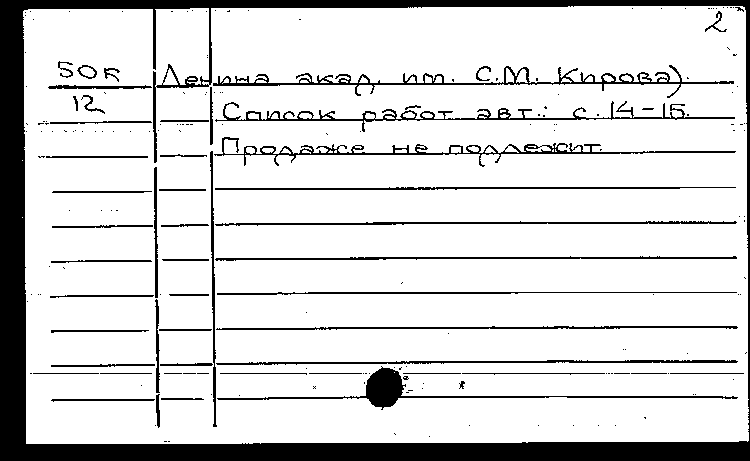 2
50к Ленина акад. им. С.М. Кирова).
12 Список работ авт.: с. 14-15.
Продаже не подлежит.